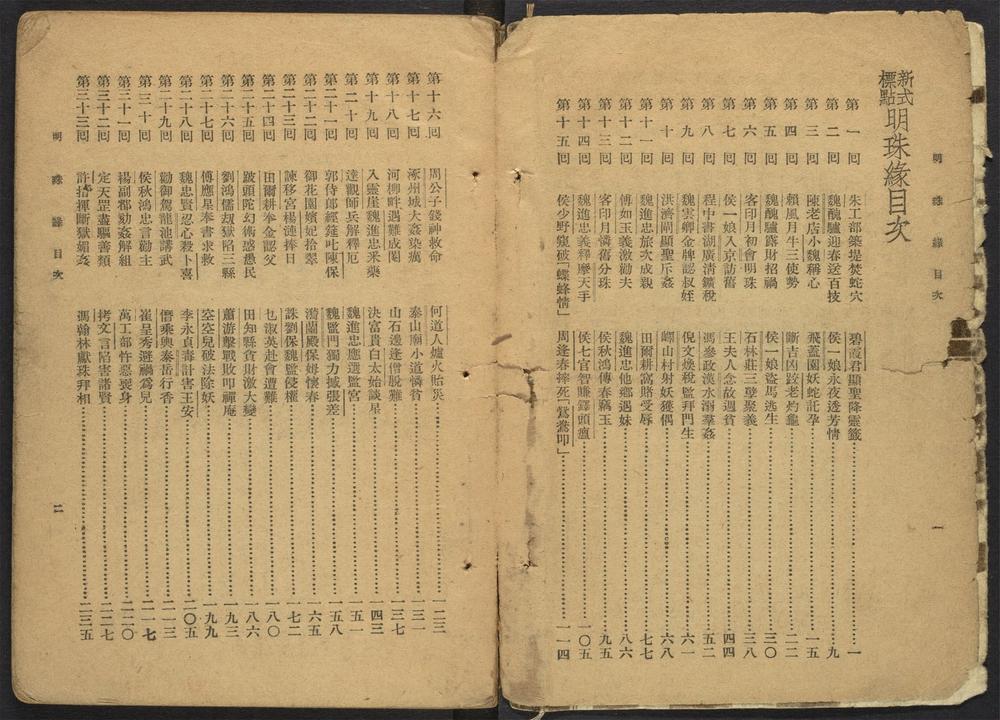 新式標點明珠緣目次
明珠緣目次 一
第一回 朱工部築堤焚蛇穴 碧霞君顯聖降靈籤 一
第二回 魏醜驢迎春送百技 侯一娘永夜透芳情 九
第三回 陳老店小魏稱心 飛蓋園妖蛇託孕 一五
第四回 賴風月牛三使勢 斷吉凶跛老灼龜 二二
第五回 魏醜驢露財招禍 侯一娘盜馬逃生 三〇
第六回 客印月初會明珠 石林莊三孽聚義 三八
第七回 侯一娘入京訪舊 王夫人念故週貧 四四
第八回 程中書湖廣清鑛稅 馮參政漢水溺羣姦 五二
第九回 魏雲卿金牌認叔姪 倪文煥稅監拜門生 六一
第十回 洪濟閘顯聖斥姦 嶧山村射妖獲偶 六八
第十一回 魏進忠旅次成親 田爾耕窩賭受辱 七七
第十二回 傅如玉義激勸夫 魏進忠他鄉遇妹 八六
第十三回 客印月憐舊分珠 侯秋鴻傳春竊玉 九五
第十四回 魏進忠義釋摩天手 侯七官智賺鐸頭瘟 一〇五
第十五回 侯少野窺破「蝶蜂情」 周逢春摔死「鴛鴦叩」 一一四
第十六回 周公子錢神救命 何道人爐火貽災 一二三
第十七回 涿州城大姦染癘 泰山廟小道憐貧 一三一
第十八回 河柳畔遇難成閹 山石邊逢僧脫難 一三七
第十九回 入靈崖魏進忠采藥 決富貴白太始談星 一四三
第二十回 達觀師兵解釋厄 魏進忠應選監宮 一五一
第二十一回 郭侍郎經筵叱陳保 魏監門獨力撼張差 一五八
第二十二回 御花園嬪妃拾翠 漪蘭殿保姆懷春 一六五
第二十三回 諫移宮楊漣捧日 誅劉保魏監侵權 一七二
第二十四回 田爾耕拳金認父 乜淑英赴會遭難 一八〇
第二十五回 跛頭陀幻術惑愚民 田知縣貪財激大變 一八六
第二十六回 劉鴻儒劫獄陷三縣 蕭游擊戰敗叩禪庵 一九三
第二十七回 傅應星奉書求救 空空兒破法除妖 一九九
第二十八回 魏忠賢忍心殺卜喜 李永貞毒計害王安 二〇五
第二十九回 勸御駕龍池講武 僭乘輿泰岳行香 二一三
第三十回 侯秋鴻忠言勸主 崔呈秀避禍爲兒 二一七
第三十一回 楊副都劾姦解組 萬工部忤惡喪身 二二〇
第三十二回 定天罡盡驅善類 拷文言陷害諸賢 二二七
第三十三回 許指揮斷獄媚姦 馮翰林獻珠拜相 二三五
明珠緣目次 二